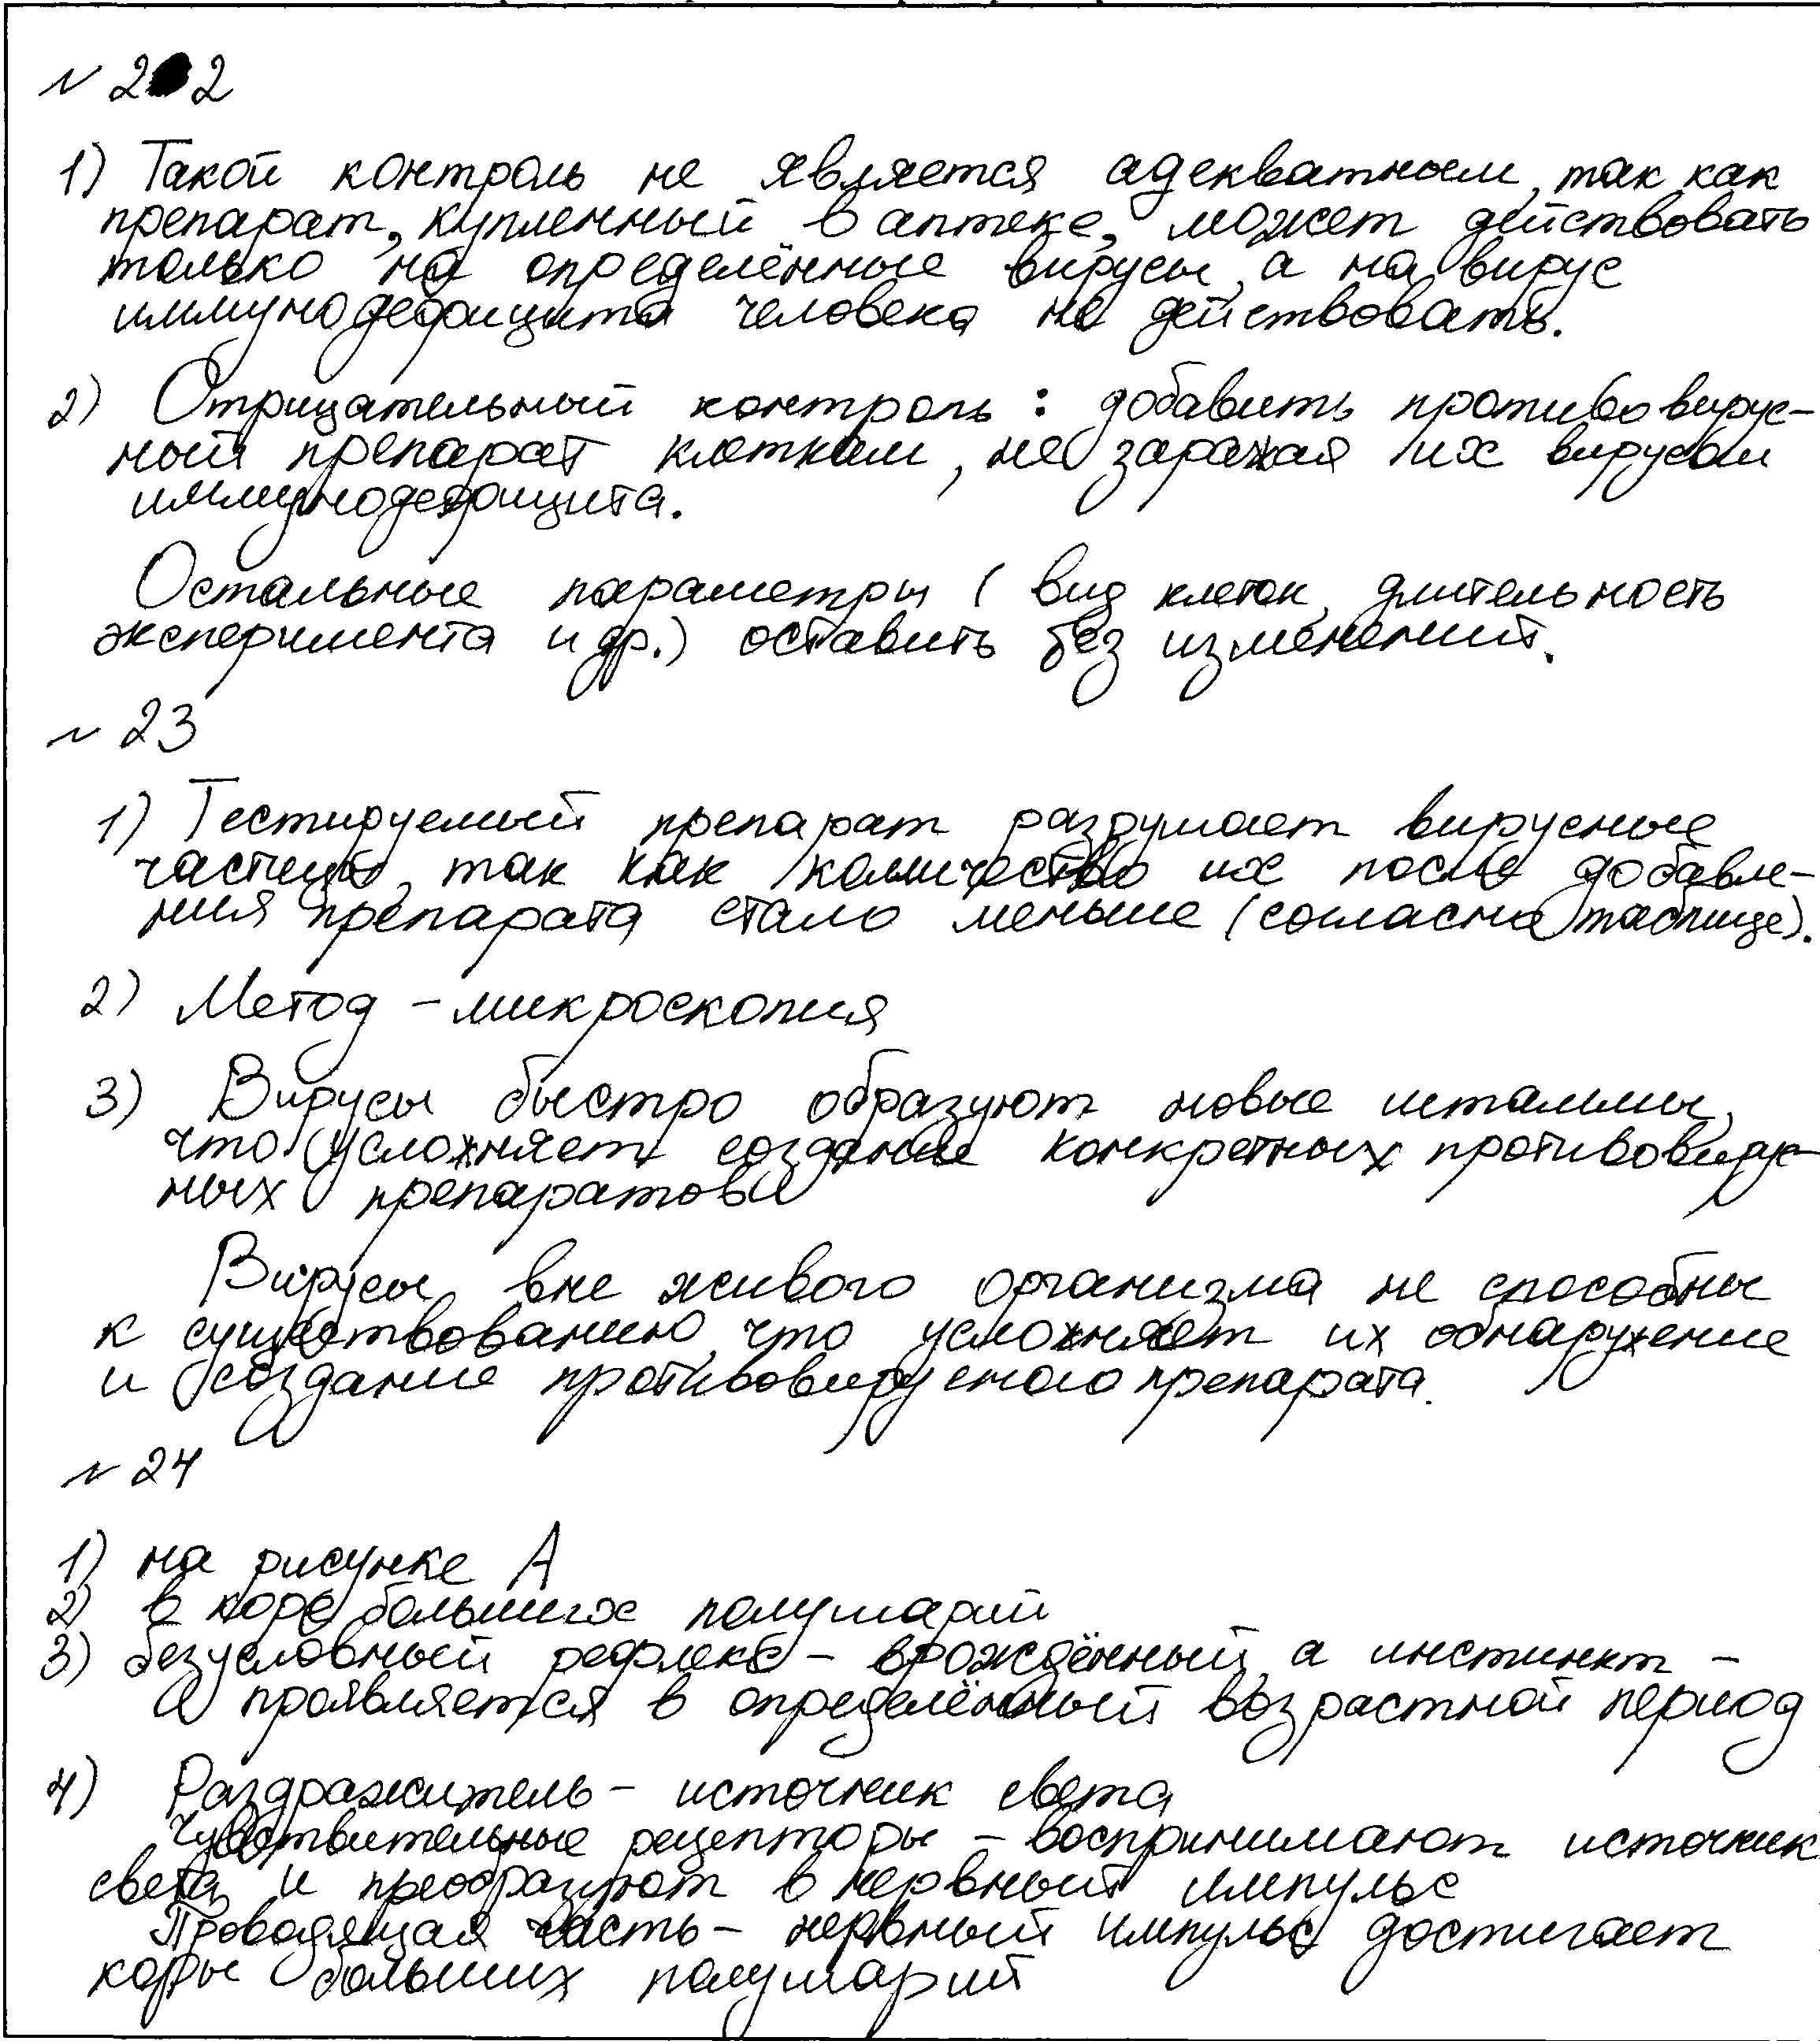 № 22
1) Такой контроль не является адекватным, так как
препарат, купленный в аптеке, может действовать
только на определённые вирусы, а на вирус
иммунодефицита человека не действовать.
2) Отрицательный контроль: добавить противовирус-
ный препарат клеткам, не заражая их вирусом
иммунодефицита.
Остальные параметры (вид клеток, длительность
эксперимента и др.) оставить без изменений.
№ 23
1) Тестируемый препарат разрушает вирусные
частицы, так как количество их после добавле-
ния препарата стало меньше (согласно таблице).
2) Метод - микроскопия
3) Вирусы быстро образуют новые штаммы,
что усложняет создание конкретных противовирус-
ных препаратов
Вирусы вне живого организма не способны
к существованию, что усложняет их обнаружение
и создание противовирусного препарата.
№ 24
1) на рисунке А
2) в коре больших полушарий
3) безусловный рефлекс - врождённый, а инстинкт -
проявляется в определённый возрастной период
4) Раздражитель - источник света
Чувствительные рецепторы - воспринимают источник
света и преобразуют в нервный импульс
Проводящая часть - нервный импульс достигает
коры больших полушарий